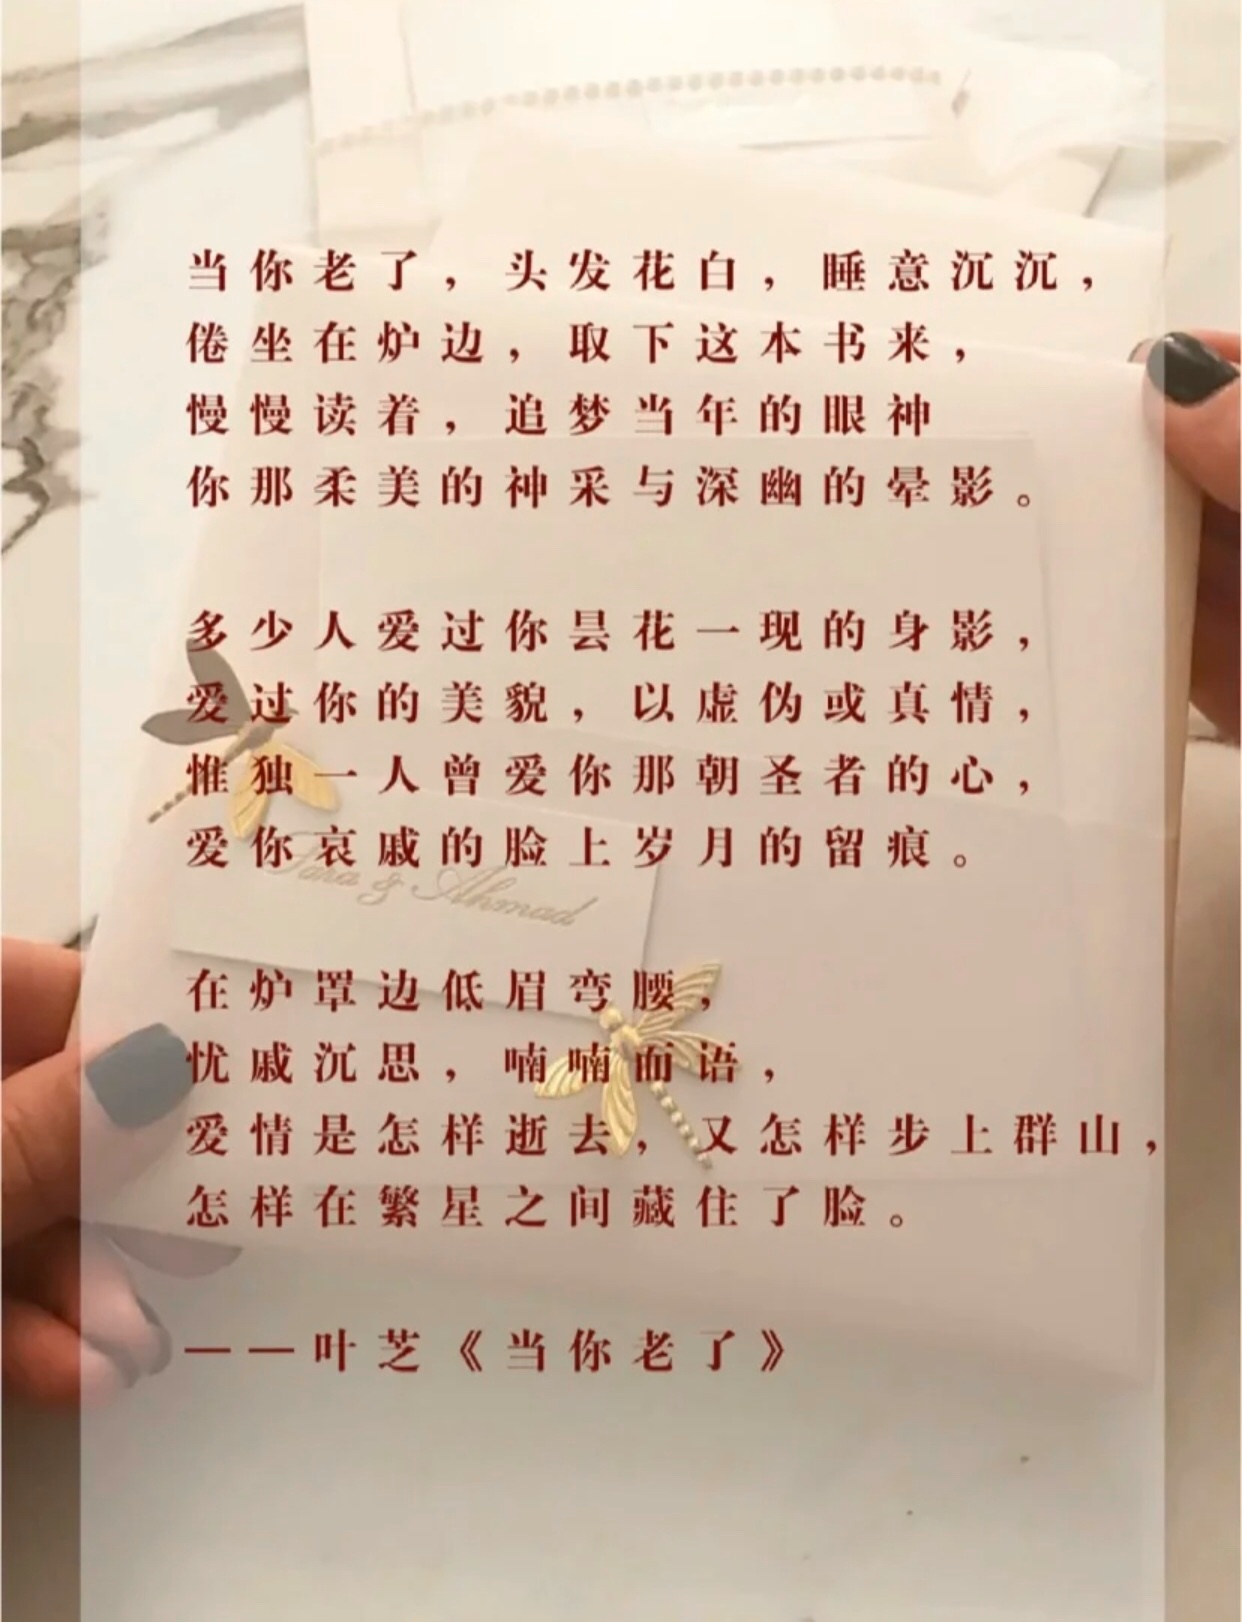 当你老了，头发花白，睡意沉沉，
倦坐在炉边，取下这本书来，
慢慢读着，追梦当年的眼神
你那柔美的神采与深幽的晕影。
多少人爱过你昙花一现的身影，
爱过你的美貌，以虚伪或真情，
惟独一人曾爱你那朝圣者的心，
爱你哀戚的脸上岁月的留痕。
Sara & Ahmad
在炉罩边低眉弯腰，
忧戚沉思，喃喃而语，
爱情是怎样逝去，又怎样步上群山，
怎样在繁星之间藏住了脸。
——叶芝《当你老了》